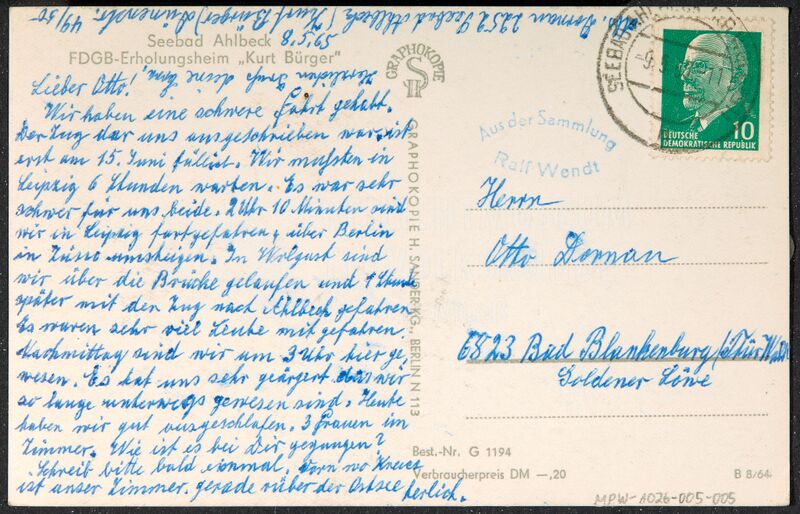 Seebad Ahlbeck
FDGB-Erholungsheim „Kurt Bürger"
Lieber Otto!
Wir haben eine schwere Fahrt gehabt.
Der Zug dar uns ausgeschrieben war, ist
erst am 15. Juni fällist. Wir mussten in
Leipzig 6 Stunden warten. Es war sehr
schwer für uns beide. 2 Uhr 10 Minuten sind
wir in Leipzig fortgefahren, über Berlin
in Züsso umsteigen. In Wolgast sind
wir über die Brücke gelaufen und 1 Stunde
später mit den Zug nach Ahlbeck gefahren
Es waren sehr viel Leute mit gefahren.
Nachmittag sind wir um 3 Uhr hier ge,
wesen. Es hat uns sehr geärgert das wir
so lange unterwegs gewesen sind. Heute
haben wir gut ausgeschlafen. 3 Frauen im
Zimmer. Wie ist es bei Dir gegangen?
Schreib bitte bald einmal. Vorn wo Kreuz
ist unser Zimmer. gerade rüber der Ostsee
herlich.
Herzlichen Gruß deine
Dornan 2252 Seebad Ahlbeck (Kurt Bürger) Dünenstr. 49/50
GRAPHOKOPIE
GRAPHOKOPIE H. SANDER KG., BERLIN N 113
SEEBAD AHLBECK
DEUTSCHE
DEMOKRATISCHE REPUBLIK
10
Aus der Sammlung
Ralf Wendt
Herrn
Otto Dornan
6823 Bad Blankenburg/Thür Wald
Goldener Löwe
Best.-Nr. G 1194
Verbraucherpreis DM —,20
B 8/64
MPW-A026-005-005